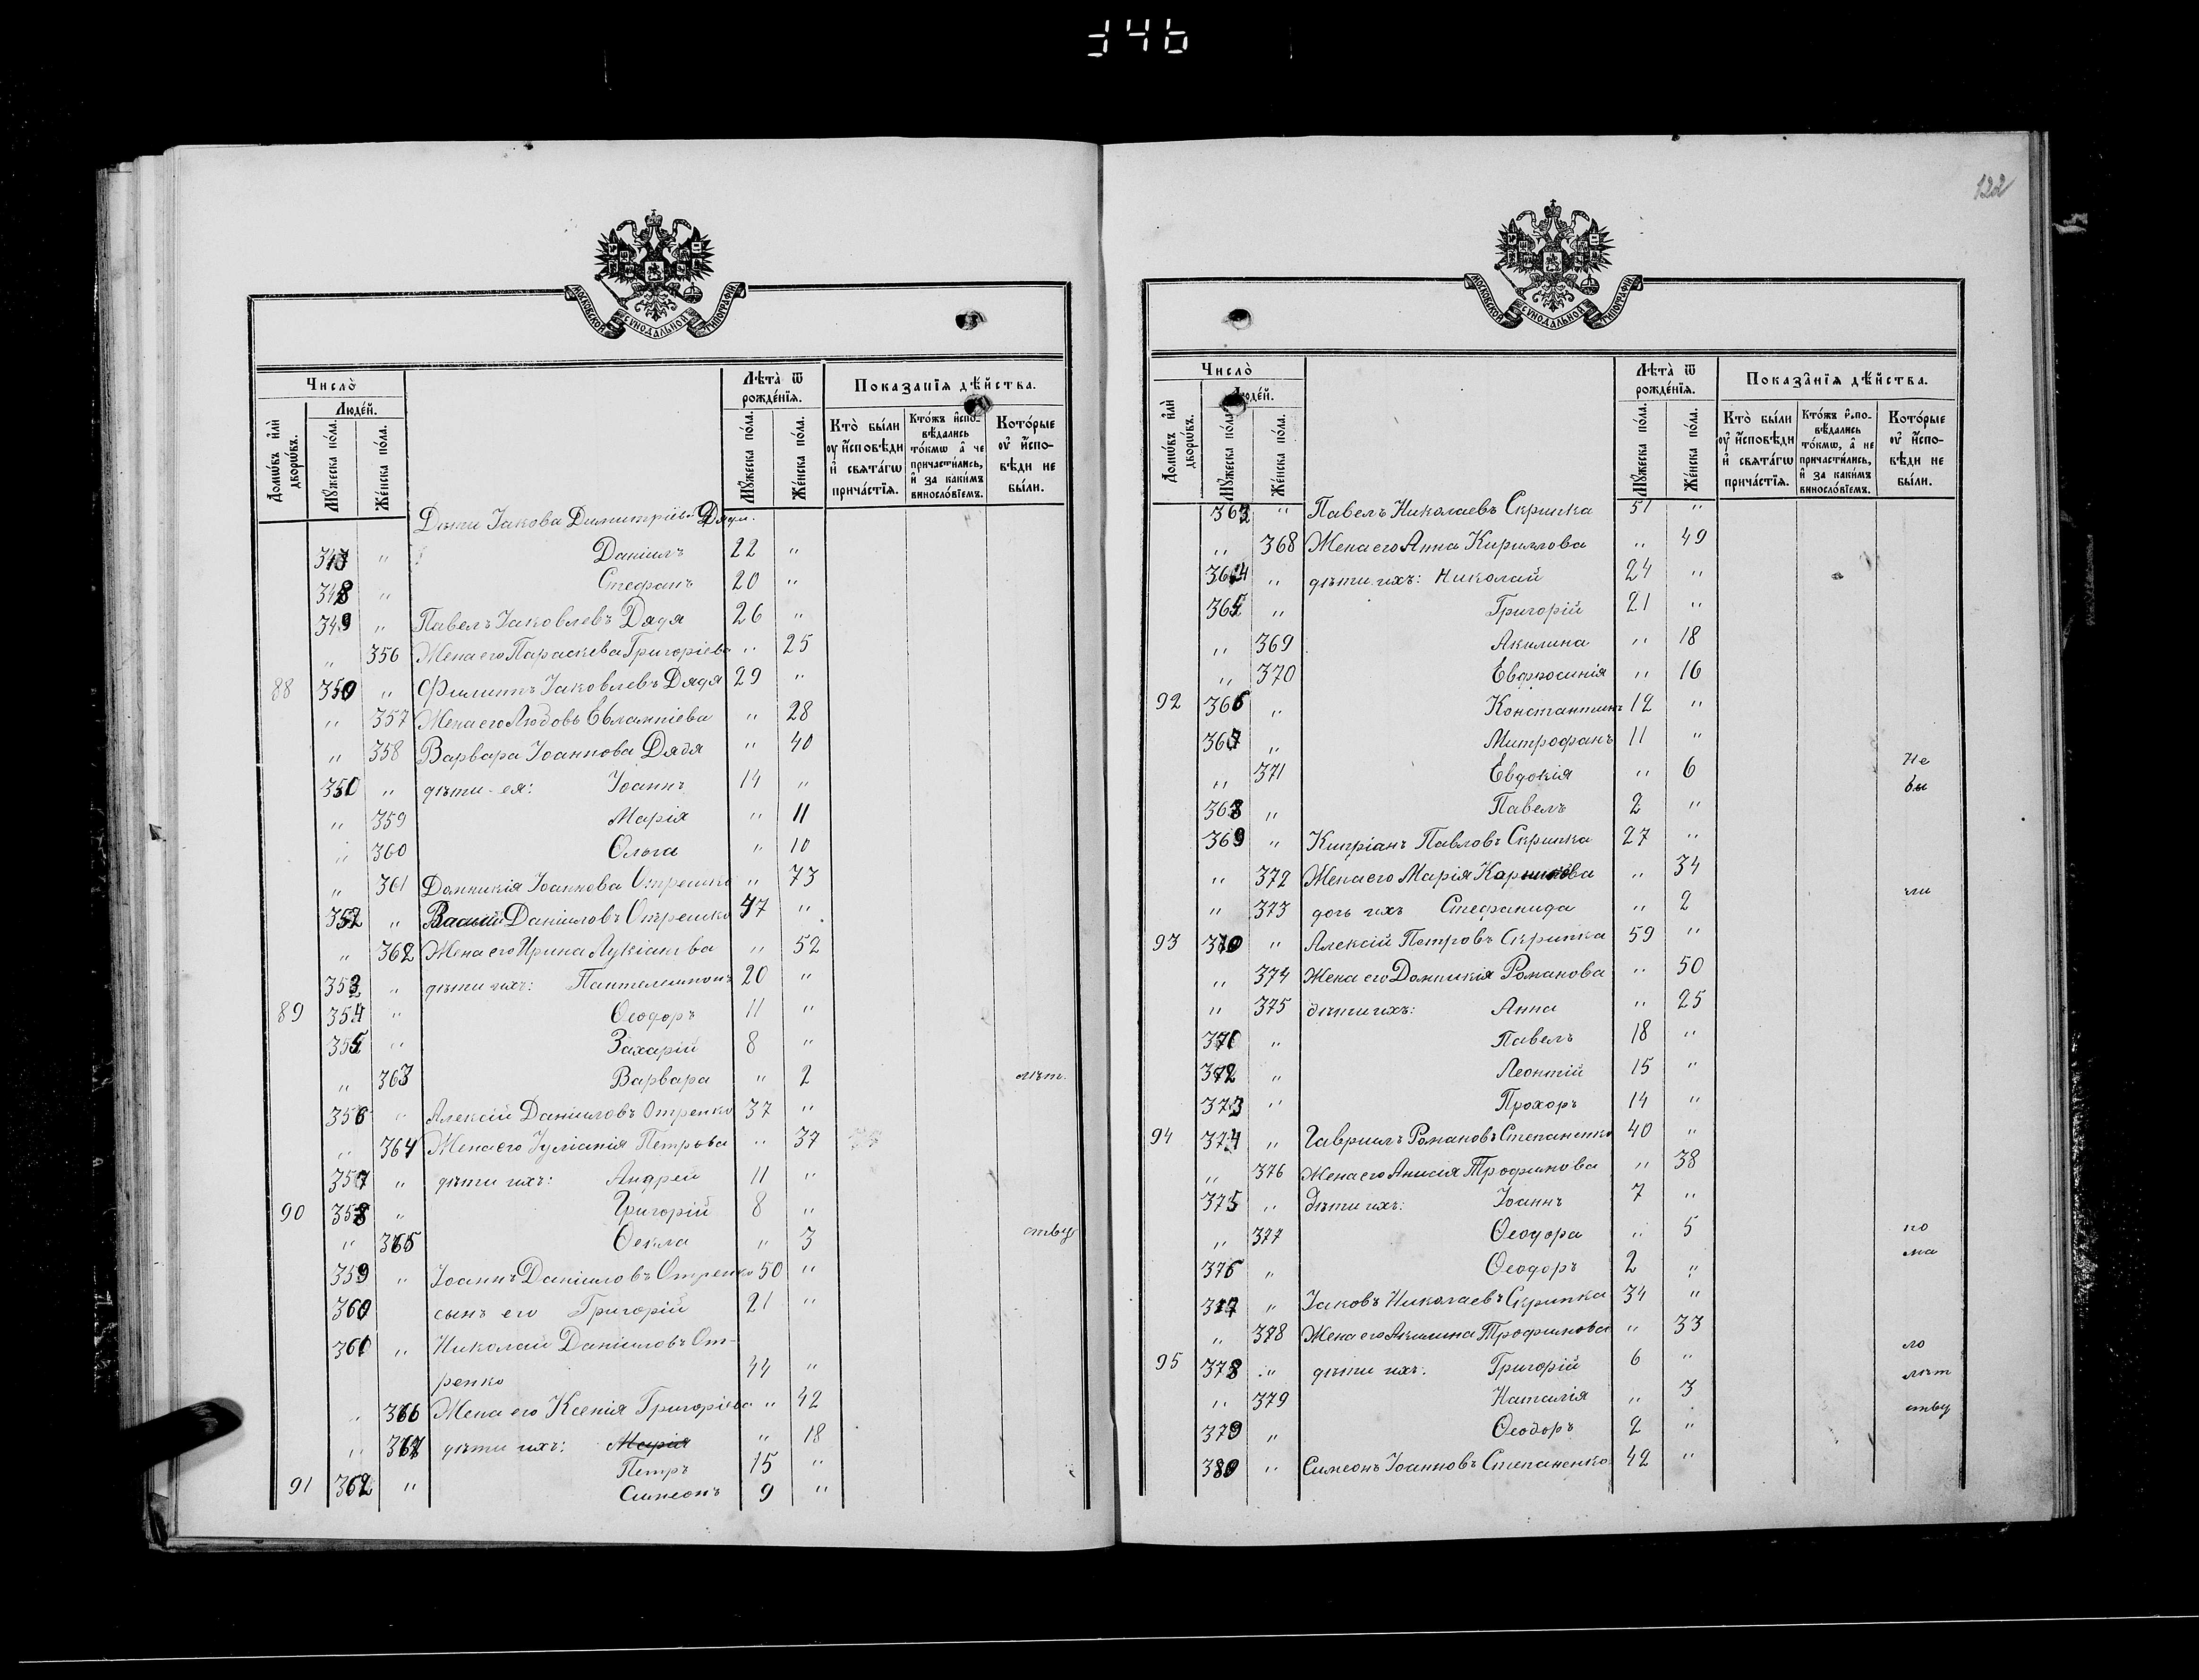 346
122
МОСКОВСКОЙ СѴНОДАЛЬНОЙ ТИПОГРАФІИ
Число̀
Домѡвъ и҆лѝ дворѡвъ.
Люде́й.
Мꙋжеска по́ла.
Же́нска по́ла.
Лѣта̀ ѿ рожде́нїѧ.
Мꙋжеска по́ла.
Же́нска по́ла.
Показанїѧ дѣ́йства.
Кто̀ бы́ли ᲂу҆ и҆сповѣди и҆ свѧта́гѡ прича́стїѧ.
Кто́жъ и҆спо-вѣдались то́кмѡ а҆ не причасти́лись, и҆ за каки́мъ винословїемъ.
Кото́рые ᲂу҆ и҆спо-вѣди не бы́ли.
Дѣти Іакова Димитріев. Дядя.
" Даніилъ 22 "
348 " Стефанъ 20 "
349 " Павелъ Іаковлевъ Дядя 26 "
" 356 Жена его Параскева Григоріева " 25
88 350 " Филиппъ Іаковлевъ Дядя 29 "
" 357 Жена его Любовь Евлампіева " 28
" 358 Варвара Іоаннова Дядя " 40
351 " дѣти-ея: Іоаннъ 14 "
" 359 Марія " 11
" 360 Ольга " 10
" 361 Домникія Іоаннова Отрешко " 73
352 " Даніиловъ Отрешко 47 "
" 362 Жена его Ирина Лукіанова " 52
353 " дѣти ихъ: Пантелеимонъ 20 "
89 354 " Ѳеодоръ 11 "
355 " Захарій 8 "
" 363 Варвара " 2 лѣт.
356 " Алексій Даніиловъ Отренко 37 "
" 364 Жена его Іуліанія Петрова " 37
357 " дѣти ихъ: Андрей 11 "
90 358 " Григорій 8 "
" 365 Ѳекла " 3 ству
359 " Іоаннъ Даніиловъ Отренко 50 "
360 сынъ его Григорій 21 "
361 " Николай Даніиловъ От-
ренко 44 "
" 366 Жена его Ксенія Григоріева " 42
" 367 дѣти ихъ: Марія " 18
Петръ 15 "
91 362 " Симеонъ 9 "
МОСКОВСКОЙ СѴНОДАЛЬНОЙ ТИПОГРАФІИ
Число̀
Домѡвъ и҆лѝ дворѡвъ.
Люде́й.
Мꙋжеска по́ла.
Же́нска по́ла.
Лѣта̀ ѿ рожде́нїѧ.
Мꙋжеска по́ла.
Же́нска по́ла.
Показа́нїѧ дѣ́йства.
Кто̀ бы́ли ᲂу҆ и҆сповѣди и҆ свѧта́гѡ прича́стїѧ.
Кто́жъ и҆спо-вѣдались то́кмѡ, а҆ не причасти́лись, и҆ за каки́мъ винословїемъ.
Кото́рые ᲂу҆ и҆спо-вѣди не бы́ли.
363 " Павелъ Николаевъ Скрипка 51 "
" 368 Жена его Анна Кириллова " 49
364 " дѣти ихъ: Николай 24 "
365 " Григорій 21 "
" 369 Акилина " 18
" 370 Евфросинія " 16
92 366 " Константинъ 12 "
367 " Митрофанъ 11 "
" 371 Евдокія " 6 Не
бы
368 " Павелъ 2 "
369 " Кипріанъ Павловъ Скрипка 27 "
" 372 Жена его Марія " 34
" 373 дочь ихъ Стефанида " 2 ли
93 370 " Алексій Петровъ Скрипка 59 "
" 374 Жена его Домникія Романова " 50
" 375 дѣти ихъ: Анна " 25
371 " Павелъ 18 "
372 " Леонтій 15 "
373 " Прохоръ 14 "
94 374 " Гавріилъ Романовъ Степаненко 40 "
" 376 Жена его Анисія Трофимова " 38
375 " дѣти ихъ: Іоаннъ 7 "
" 377 Ѳеодора " 5 по
ма
376 " Ѳеодоръ 2 "
377 " Іаковъ Николаевъ Скрипка 34 "
" 378 Жена его Акилина Трофимова " 33
ло
95 378 " дѣти ихъ. Григорій 6 "
лѣт
" 379 Наталія " 3
ству
379 " Ѳеодоръ 2 "
380 " Симеонъ Іоанновъ Степаненко 42 "